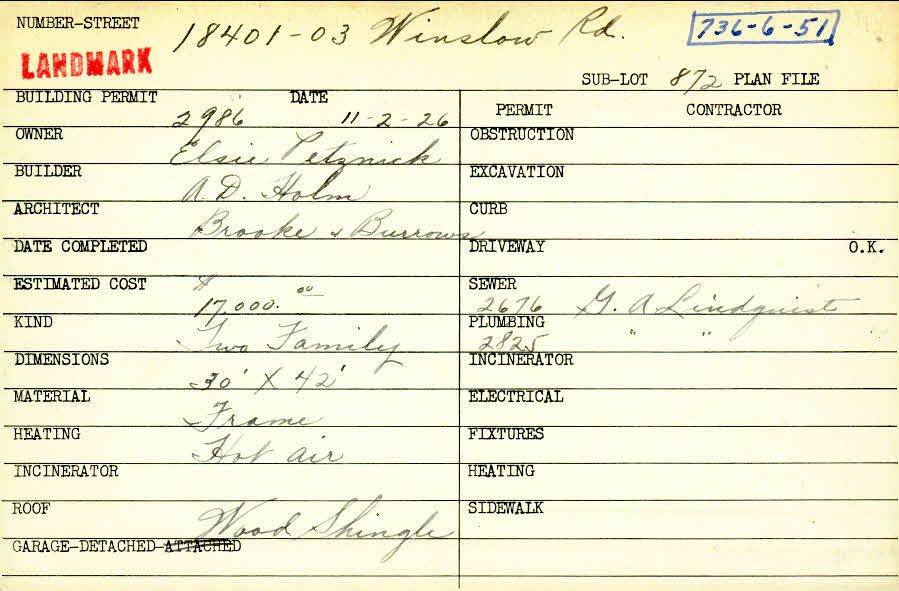 NUMBER-STREET 18401-03 Winslow Rd. 736-6-51
LANDMARK
SUB-LOT 872 PLAN FILE
BUILDING PERMIT DATE
2986 11-2-26
PERMIT CONTRACTOR
OWNER Elsie Petznick
BUILDER A. D. Holm
ARCHITECT Brooke & Burrows
DATE COMPLETED
ESTIMATED COST $ 17,000.00
KIND Two Family
DIMENSIONS 30' X 42'
MATERIAL Frame
HEATING Hot air
INCINERATOR
ROOF Wood Shingle
GARAGE-DETACHED-ATTACHED
OBSTRUCTION
EXCAVATION
CURB
DRIVEWAY O.K.
SEWER 2676 G. A Lindquist
PLUMBING 2825 " "
INCINERATOR
ELECTRICAL
FIXTURES
HEATING
SIDEWALK